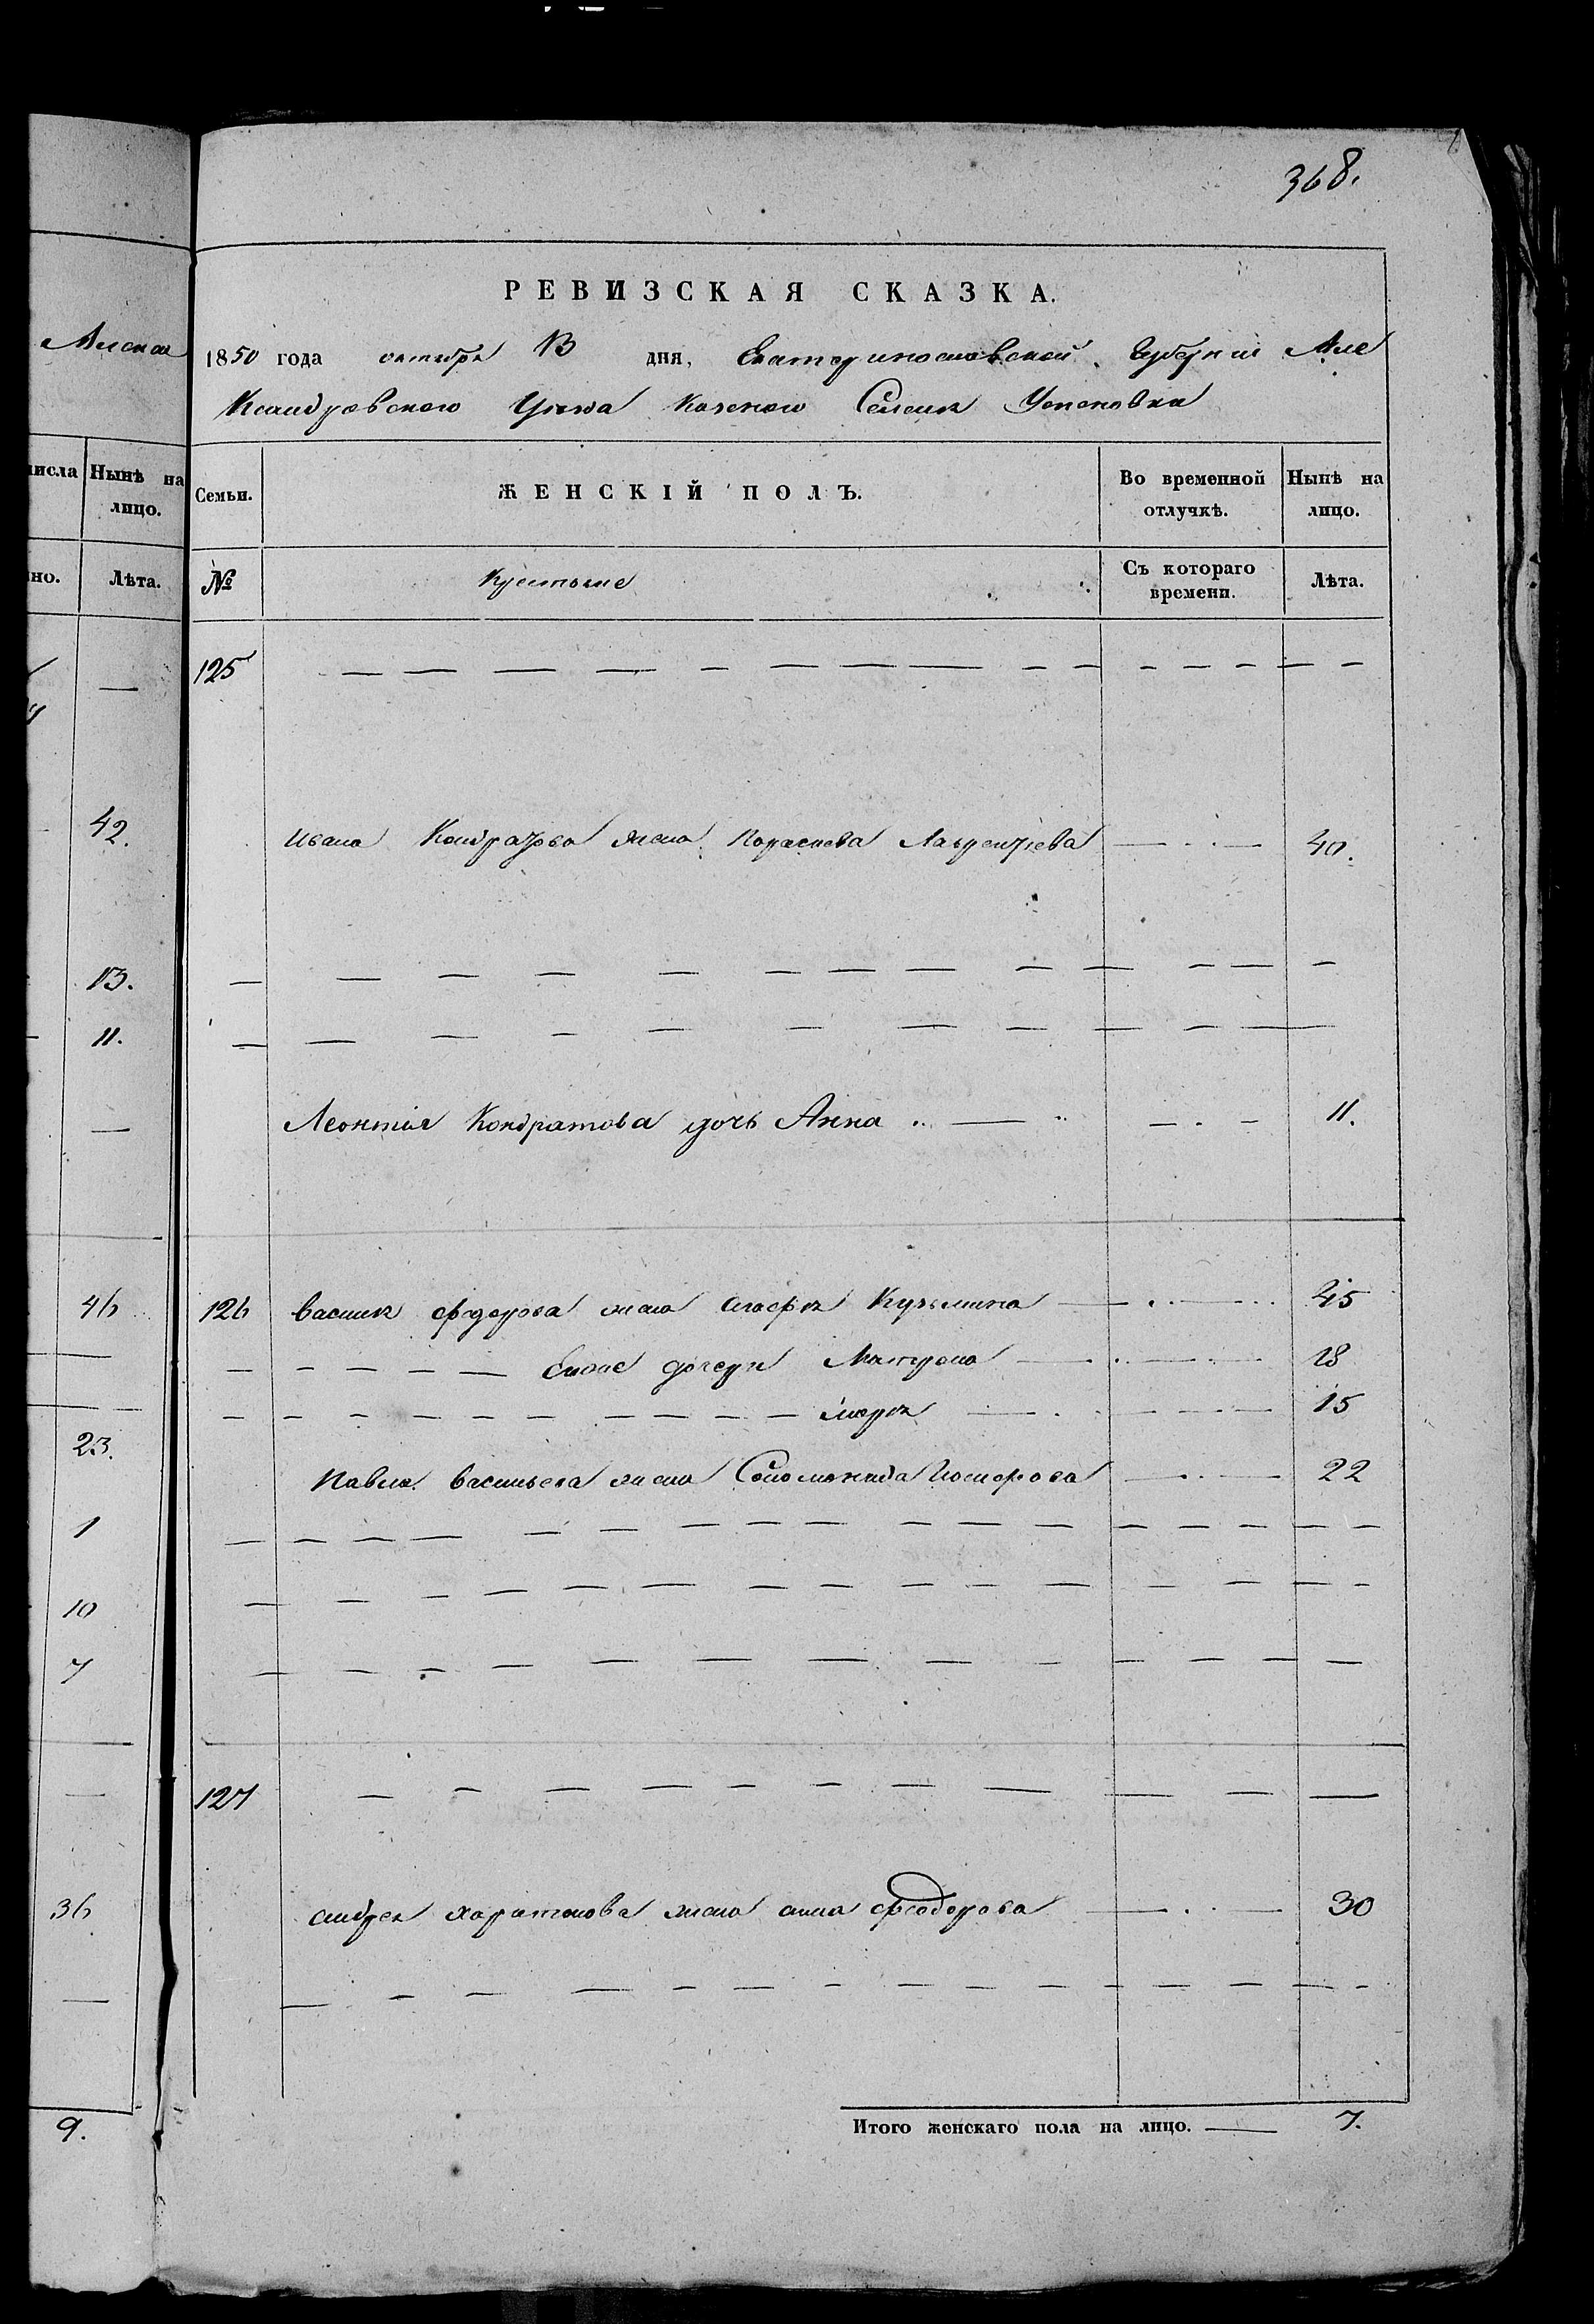 368.
РЕВИЗСКАЯ СКАЗКА.
1850 года октября 13 дня, Екатеринославской Губерніи Але
ксандровскаго Уезда Казенаго Селенія Успеновки
числа
Нынѣ на лицо.
Семьи.
ЖЕНСКІЙ ПОЛЪ.
Во временной отлучкѣ.
Нынѣ на лицо.
но.
Лѣта.
№
Крестьяне
Съ котораго времени.
Лѣта.
125 — — — — — — — — — — — — — — — —
42. Ивана Кондратова жена Парасиева Лаврентьева — 40.
13. — — — — — — — — — — — — —
11. — — — — — — — — — — —
— Леонтія Кондратова дочь Анна — 11.
46 126 Василя Федорова жена Агафія Кузьмина — 45
— — — — — — Его дочери Матрона — 18
— — — — — — — — — — — Марія — 15
23. Павла Васильева жена Соломанида Иосифова — 22
1 — — — — — — — — — — — — — — — — —
10 — — — — — — — — — — — — — — —
7 — — — — — — — — — — — — —
— 127 — — — — — — — — — — —
36 Андрея Харитонова жена Анна Феодорова — 30
— — — — — — — — — — — — — — — —
9. Итого женскаго пола на лицо. — 7.